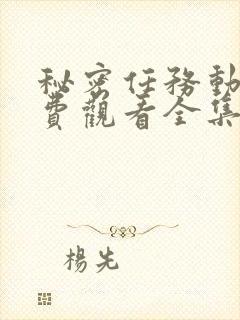 秘密任務動
費觀看全集
楊先